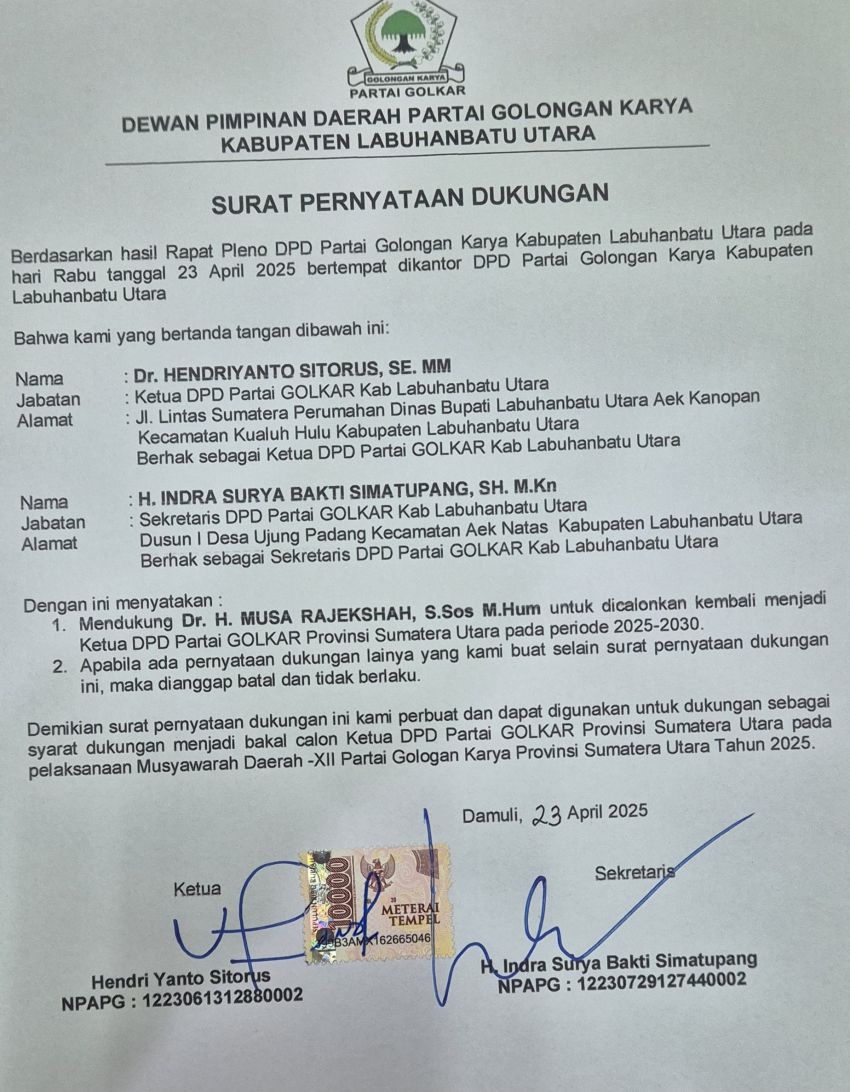 GOLONGAN KARYA
PARTAI GOLKAR
DEWAN PIMPINAN DAERAH PARTAI GOLONGAN KARYA
KABUPATEN LABUHANBATU UTARA
SURAT PERNYATAAN DUKUNGAN
Berdasarkan hasil Rapat Pleno DPD Partai Golongan Karya Kabupaten Labuhanbatu Utara pada
hari Rabu tanggal 23 April 2025 bertempat dikantor DPD Partai Golongan Karya Kabupaten
Labuhanbatu Utara
Bahwa kami yang bertanda tangan dibawah ini:
Nama : Dr. HENDRIYANTO SITORUS, SE. MM
Jabatan : Ketua DPD Partai GOLKAR Kab Labuhanbatu Utara
Alamat : Jl. Lintas Sumatera Perumahan Dinas Bupati Labuhanbatu Utara Aek Kanopan
Kecamatan Kualuh Hulu Kabupaten Labuhanbatu Utara
Berhak sebagai Ketua DPD Partai GOLKAR Kab Labuhanbatu Utara
Nama : H. INDRA SURYA BAKTI SIMATUPANG, SH. M.Kn
Jabatan : Sekretaris DPD Partai GOLKAR Kab Labuhanbatu Utara
Alamat Dusun I Desa Ujung Padang Kecamatan Aek Natas Kabupaten Labuhanbatu Utara
Berhak sebagai Sekretaris DPD Partai GOLKAR Kab Labuhanbatu Utara
Dengan ini menyatakan :
1. Mendukung Dr. H. MUSA RAJEKSHAH, S.Sos M.Hum untuk dicalonkan kembali menjadi
Ketua DPD Partai GOLKAR Provinsi Sumatera Utara pada periode 2025-2030.
2. Apabila ada pernyataan dukungan lainya yang kami buat selain surat pernyataan dukungan
ini, maka dianggap batal dan tidak berlaku.
Demikian surat pernyataan dukungan ini kami perbuat dan dapat digunakan untuk dukungan sebagai
syarat dukungan menjadi bakal calon Ketua DPD Partai GOLKAR Provinsi Sumatera Utara pada
pelaksanaan Musyawarah Daerah -XII Partai Gologan Karya Provinsi Sumatera Utara Tahun 2025.
Damuli, 23 April 2025
Ketua
Sekretaris
10000
METERAI
TEMPEL
Hendri Yanto Sitorus
NPAPG : 1223061312880002
H. Indra Surya Bakti Simatupang
NPAPG : 12230729127440002